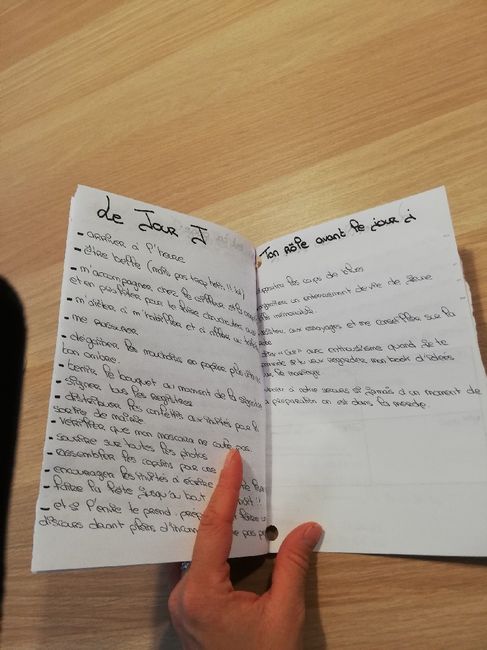 Le Jour J
- arriver à l'heure
- être belle (mais pas trop hein !! lol)
- m'accompagner chez le coiffeur et la
et en profiter pour te faire chouchouter
- m'aider à m'habiller et à enfiler
- me rassurer
- dégainer les mouchoirs en papier plus vite
ton ombre.
- tenir le bouquet au moment de la signature
- signer tous les registres
- distribuer les confettis aux invités pour la
sortie de mairie.
- vérifier que mon mascara ne coule pas
- sourire sur toutes les photos
- rassembler les copains pour une
- encourager les invités à
- faire la fête jusqu'au bout de la nuit !!
- et si l'envie te prend, faire un
discours devant pleins d'inconnus pas
Ton rôle avant le jour j
les coups de blues
un enterrement de vie de jeune
mémorable.
aux essayages et me conseiller sur la
"oui" avec enthousiasme quand je te
demande si tu veux regarder mon book d'idées
sur le mariage
venir à notre secours si jamais à un moment de
préparation on est dans la merde.